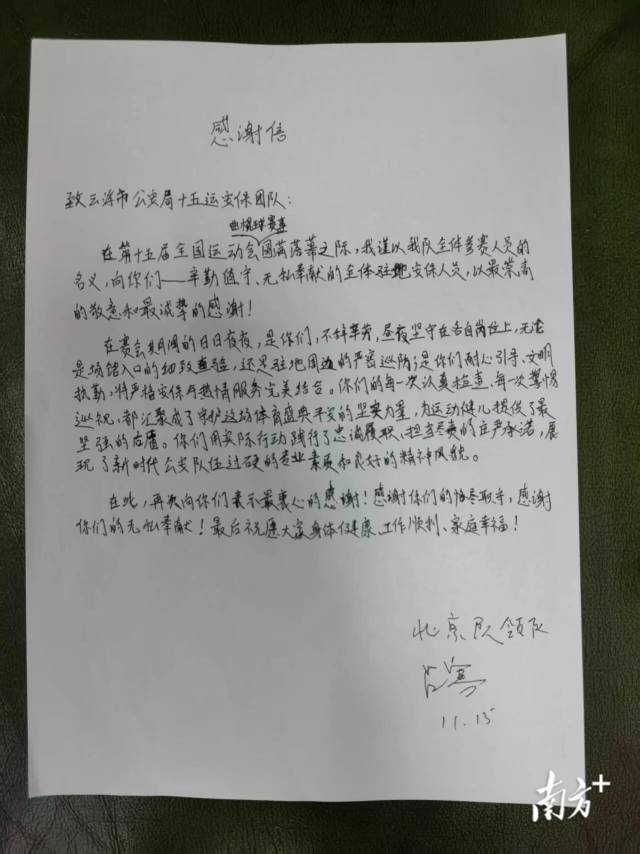 感谢信
致云浮市公安局十五运安保团队：
曲棍球赛事
在第十五届全国运动会圆满落幕之际，我谨以我队全体参赛人员的
名义，向你们——辛勤值守、无私奉献的全体驻地安保人员，以最崇高
的敬意和最诚挚的感谢！
在赛会期间的日日夜夜，是你们，不辞辛劳，昼夜坚守在各自岗位上，无论
是场馆入口的细致查验，还是驻地周边的严密巡防；是你们耐心引导、文明
执勤，将严格安保与热情服务完美结合。你们的每一次认真检查，每一次警惕
巡视，都汇聚成了守护这场体育盛典平安的坚实力量，为运动健儿提供了最
坚强的后盾。你们用实际行动践行了忠诚履职、担当尽责的庄严承诺，展
现了新时代公安队伍过硬的专业素质和良好的精神风貌。
在此，再次向你们表示最衷心的感谢！感谢你们的恪尽职守，感谢
你们的无私奉献！最后祝愿大家身体健康、工作顺利、家庭幸福！
北京队领队
11.15
南方+